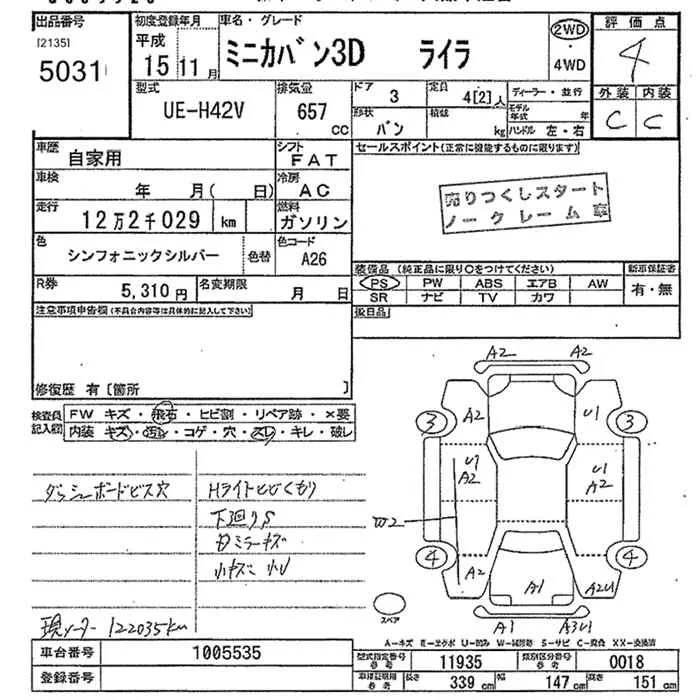 出品番号 初度登録年月 車名・グレード 評価点
[2135] 平成 ミニカバン3D ライラ 2WD 4
5031 15年11月 ・4WD
型式 排気量 ドア 3 定員 4[2]人 ディーラー・並行 外装 内装
UE-H42V 657cc 形状 バン 積載 kg モデル年式 年 C C
ハンドル 左・右
車歴 自家用 シフト FAT セールスポイント(正常に機能するものに限ります)
車検 年 月( 日) 冷房 AC 売りつくしスタート
走行 12万2千029 km 燃料 ガソリン ノークレーム車
色 シンフォニックシルバー 色替 色コード A26
装備品 (純正品に限り○をつけてください) 新車保証書
R券 5,310円 名変期限 月 日 PS PW ABS エアB AW 有・無
SR ナビ TV カワ
注意事項申告欄(不具合内容等は具体的に記入して下さい) 後日品
修復歴 有〔箇所 〕
検査員記入欄 FW キズ・飛石・ヒビ割・リペア跡・×要
内装 キズ・汚レ・コゲ・穴・スレ・キレ・破レ
ダッシュボードビス穴 Hライトヒビくもり
下廻りS
ミラーキズ
小キズ 小U
現メーター 122035km
A2 A2
3 A2 U1 3
U1 A2 U1 A2
W2
4 A2 A1 A2U1 4
スペア A1 A3U1
A-キズ E-エクボ U-凹み W-補修跡 S-サビ C-腐食 XX-交換済
車台番号 1005535 型式指定番号 参考 11935 類別区分番号 参考 0018
登録番号 車検証期用 参考 長さ 339 cm 幅 147 cm 高さ 151 cm